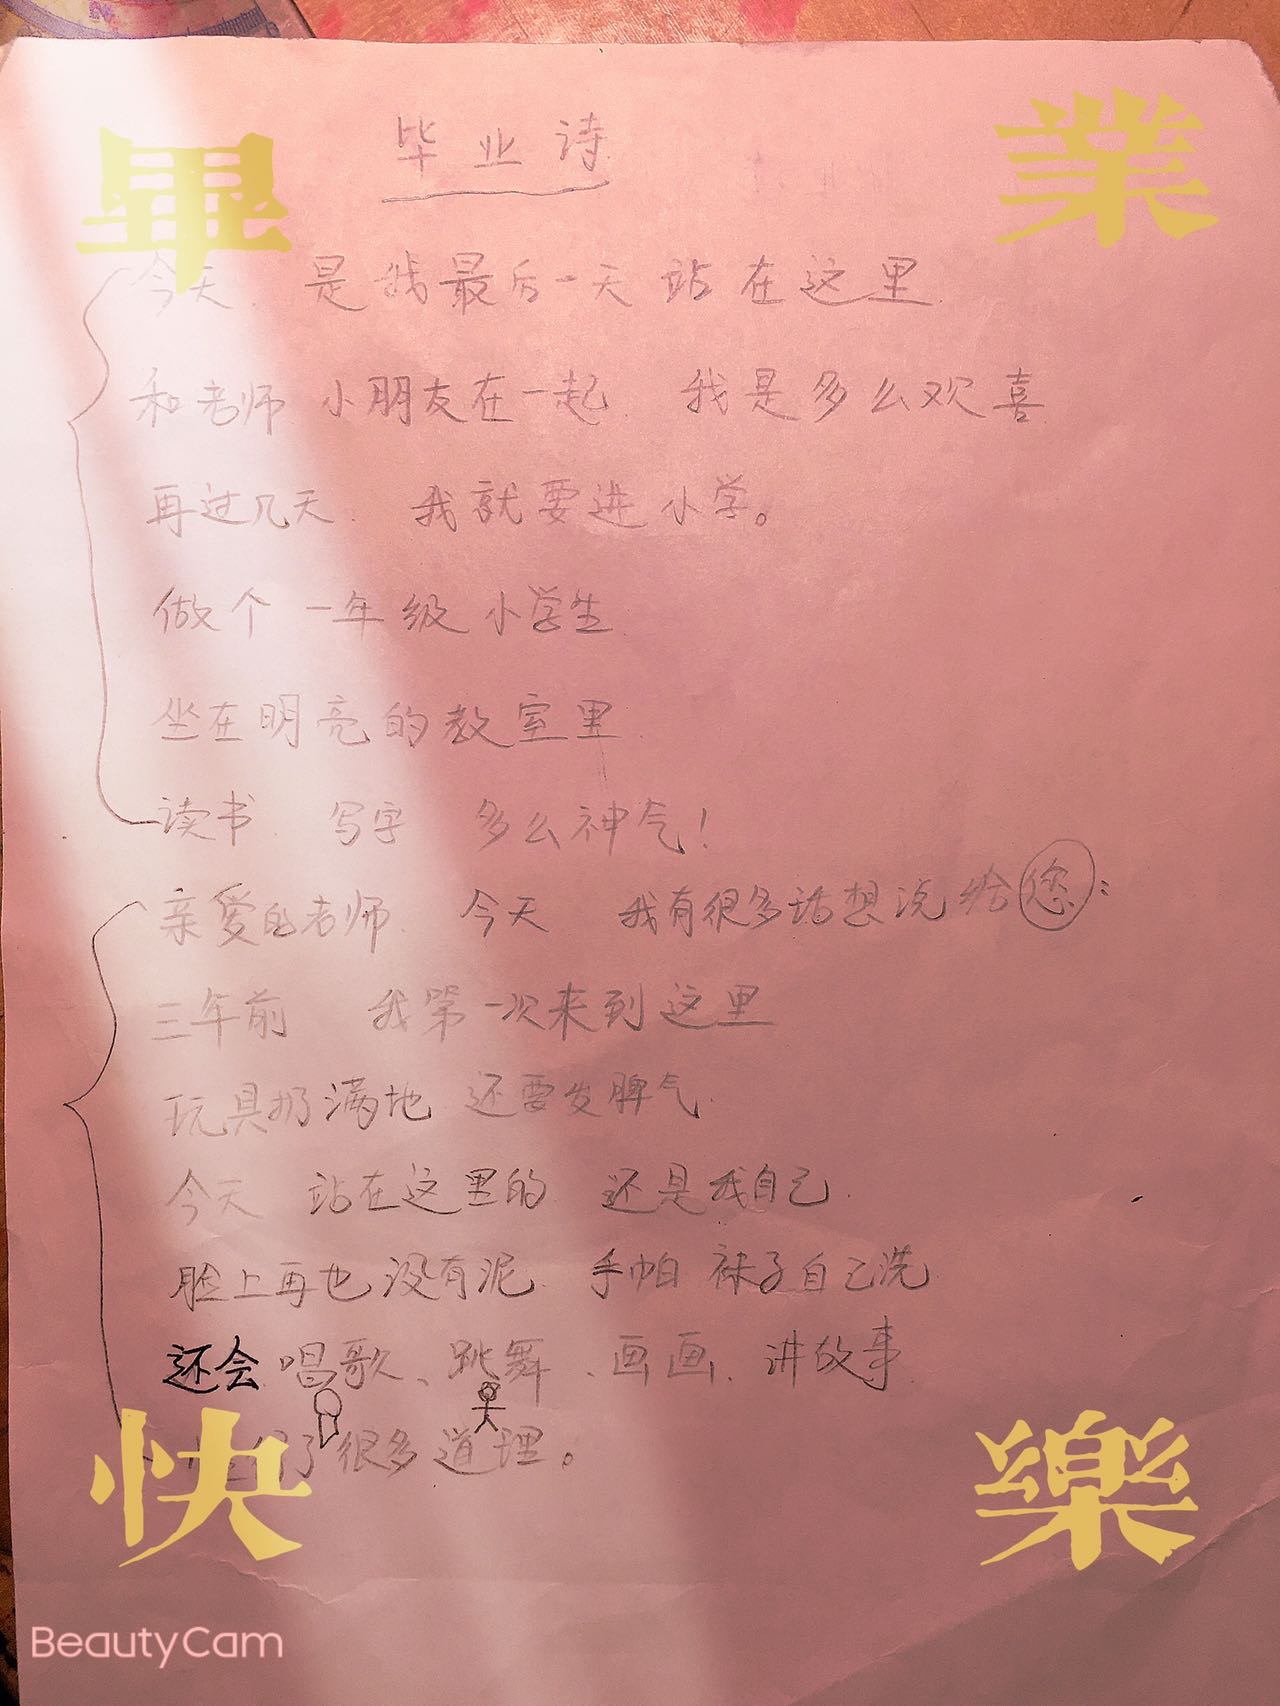 畢 業
毕业诗
今天 是我最后一天站在这里
和老师 小朋友在一起 我是多么欢喜
再过几天 我就要进小学。
做个一年级小学生
坐在明亮的教室里
读书 写字 多么神气！
亲爱的老师 今天 我有很多话想说给您：
三年前 我第一次来到这里
玩具扔满地 还要发脾气
今天 站在这里的 还是我自己
脸上再也没有泥 手帕 袜子自己洗
还会唱歌、跳舞、画画、讲故事
了很多道理。
快 樂
BeautyCam